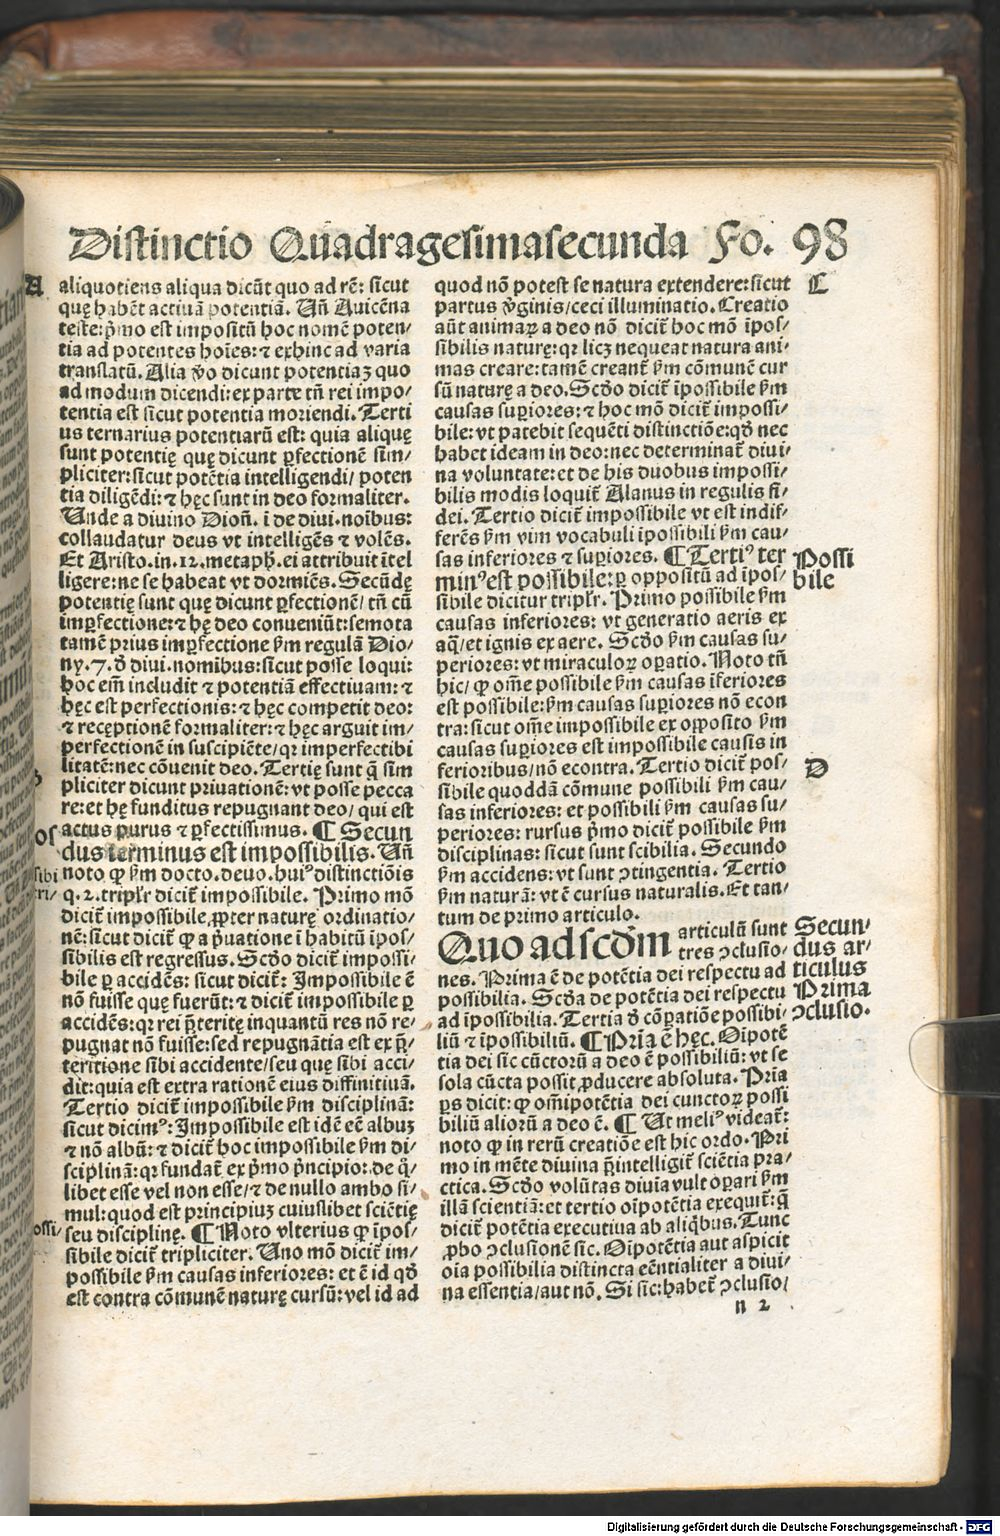 Distinctio Quadragesimasecunda Fo. 98
A
aliquotiens aliqua dicūt̄ quo ad rē: sicut
quę habēt activā potentiā. Un̄ Auicēna
teste: p̄mo est impositū hoc nomē poten/
tia ad potentes hoīes: ⁊ exhinc ad varia
translatū. Alia v̄o dicunt potentiaȝ quo
ad modum dicendi: ex parte tn̄ rei impo/
tentia est sicut potentia moriendi. Terti
us ternarius potentiarū est: quia aliquę
sunt potentię quę dicunt ꝑfectionē sim/
pliciter: sicut potētia intelligendi/ poten
tia diligēdi: ⁊ hęc sunt in deo formaliter.
Unde a divino Dion̄. ī de divi. noībus:
collaudatur deus vt intelligēs ⁊ volēs.
Et Aristo. in. 12. metaph. ei attribuit ītel
ligere: ne se habeat vt dormiēs. Secūdę
potentię sunt quę dicunt ꝑfectionē/ tn̄ cū
imꝑfectione: ⁊ hę deo conveniūt: semota
tamē prius imꝑfectione ẜm regulā Dio/
ny. 7. d̄ divi. nomibus: sicut posse loqui:
hoc em̄ includit ⁊ potentiā effectiuam: ⁊
hęc est perfectionis: ⁊ hęc competit deo:
⁊ receptionē formaliter: ⁊ hęc arguit im/
perfectionē in suscipiēte/ qꝛ imperfectibi
litatē: nec cōuenit deo. Tertię sunt q̄ sim
pliciter dicunt priuationē: vt posse pecca
re: et hę funditus repugnant deo/ qui est
actus purus ⁊ ꝑfectissimus. ¶ Secun
dus terminus est impossibilis. Un̄
noto ꝙ ẜm docto. deuo. huiꝰ distinctiōis
q. 2. triplr̄ dicit̄ impossibile. Primo mō
dicit̄ impossibile ꝓpter naturę ordinatio/
nē: sicut dicit̄ ꝙ a p̄uatione ī habitū īpos/
sibilis est regressus. Scd̄o dicit̄ impossi/
bile ꝑ accidēs: sicut dicit̄: Impossibile ē
nō fuisse quę fuerūt: ⁊ dicit̄ impossibile ꝑ
accidēs: qꝛ rei p̄teritę inquantū res nō re/
pugnat nō fuisse: sed repugnātia est ex p̄/
teritione sibi accidente/ seu quę sibi acci/
dit: quia est extra rationē eius diffinitiuā.
Tertio dicit̄ impossibile ẜm disciplinā:
sicut dicimꝰ: Impossibile est idē eē albuȝ
⁊ nō albū: ⁊ dicit̄ hoc impossibile ẜm di/
sciplinā: qꝛ fundat̄ ex p̄mo p̄ncipio: de q̄/
libet esse vel non esse/ ⁊ de nullo ambo si/
mul: quod est principiuȝ cuiuslibet sciētię
seu disciplinę. ¶ Noto vlterius ꝙ īpos/
sibile dicit̄ tripliciter. Uno mō dicit̄ im/
possibile ẜm causas inferiores: et ē id qd̄
est contra cōmunē naturę cursū: vel id ad
quod nō potest se natura extendere: sicut
partus v̄ginis/ ceci illuminatio. Creatio
aūt animaꝝ a deo nō dicit̄ hoc mō īpos/
sibilis naturę: qꝛ licȝ nequeat natura ani/
mas creare: tamē creant̄ ẜm cōmunē cur
sū naturę a deo. Scd̄o dicit̄ īpossibile ẜm
causas suꝑiores: ⁊ hoc mō dicit̄ impossi/
bile: vt patebit sequēti distinctiōe: qd̄ nec
habet ideam in deo: nec determinat̄ diui/
na voluntate: et de his duobus impossi/
bilis modis loquit̄ Alanus in regulis fi/
dei. Tertio dicit̄ impossibile vt est indif/
ferēs ẜm vim vocabuli īpossibili ẜm cau/
sas inferiores ⁊ suꝑiores. ¶ Tertiꝰ ter
minꝰ est possibile: ꝑ oppositū ad īpos/
sibile dicitur triplr̄. Primo possibile ẜm
causas inferiores: vt generatio aeris ex
aq̄/ et ignis ex aere. Scd̄o ẜm causas su/
periores: vt miraculoꝝ oꝑatio. Noto tn̄
hic/ ꝙ om̄e possibile ẜm causas īferiores
est possibile: ẜm causas suꝑiores nō econ
tra: sicut om̄e impossibile ex opposito ẜm
causas suꝑiores est impossibile causis in
ferioribus/ nō econtra. Tertio dicit̄ pos/
sibile quoddā cōmune possibili ẜm cau/
sas inferiores: et possibili ẜm causas su/
periores: rursus p̄mo dicit̄ possibile ẜm
disciplinas: sicut sunt scibilia. Secundo
ẜm accidens: vt sunt ꝯtingentia. Tertio
ẜm naturā: vt ē cursus naturalis. Et tan/
tum de primo articulo.
Quo ad scd̄m articulū sunt
tres ꝯclusio/
nes. Prima ē de potētia dei respectu ad
possibilia. Scd̄a de potētia dei respectu
ad īpossibilia. Tertia d̄ cōꝑatiōe possibi/
liū ⁊ īpossibiliū. ¶ Pria ē hęc. Oīpotē
tia dei sic cūctorū a deo ē possibiliū: vt se
sola cūcta possit ꝓducere absoluta. Pria
ꝑs dicit: ꝙ om̄ipotētia dei cunctoꝝ possi
biliū aliorū a deo ē. ¶ Ut meliꝰ videat̄:
noto ꝙ in rerū creatiōe est hic ordo. Pri
mo in mēte divina p̄intelligit̄ sciētia pra/
ctica. Scd̄o volūtas diuia vult oꝑari ẜm
illā scientiā: et tertio oīpotētia exequit̄: q̄
dicit̄ potētia executiua ab aliq̄bus. Tunc
ꝓbo ꝯclusionē sic. Oīpotētia aut aspicit
oīa possibilia distincta eēntialiter a diui/
na essentia/ aut nō. Si sic: habet̄ ꝯclusio/
n 2
C
Possi
bile
D
Secun/
dus ar/
ticulus
Prima
ꝯclusio.
Digitalisierung gefördert durch die Deutsche Forschungsgemeinschaft - DFG